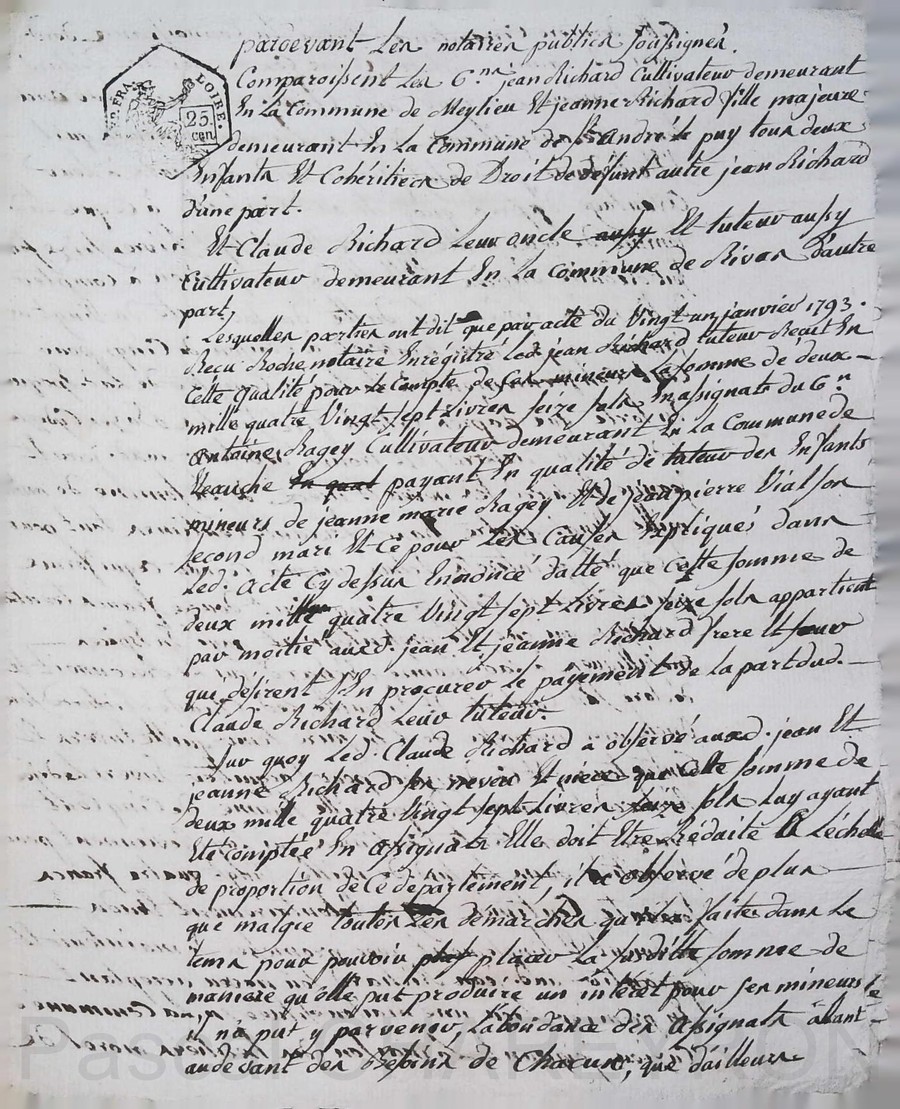 pardevant Les notaires publics soussignés.
Comparoissent Les C.ns jean Richard Cultivateur demeurant
En La Commune de Meylieu Et jeanne Richard fille majeure
demeurant En La Commune de St André le puy tous deux
Enfants Et Cohéritiers de Droit de défunt autre jean Richard
d'une part.
Et Claude Richard Leur oncle aussy Et tuteur aussy
Cultivateur demeurant En La Commune de Rivas D'autre
part,
Lesquelles parties ont dit que par acte du Vingt un janvier 1793.
Reçu Roche notaire Enrégistré led. jean Richard tuteur Reçut En
Cette qualité pour le Compte de ses mineurs La somme de deux
mille quatre Vingt sept Livres seize sols En assignats du C.n
antoine Ragey Cultivateur demeurant En La Commune de
Veauche En qual payant En qualité de tuteur des Enfants
mineurs de jeanne marie Ragey Et de jean pierre Vial son
second mari Et Ce pour Les Causes Expliqués dans
Led. acte Cy dessus Enoncé datté que Cette somme de
deux mille quatre Vingt sept Livres seize sols appartient
par moitié auxd. jean Et jeanne Richard frere Et sœur
que désirent s'En procurer le payement de la part dud.
Claude Richard Leur tuteur.
Sur quoy Led. Claude Richard a observé auxd. jean Et
jeanne Richard ses neveu Et niece que Cette somme de
deux mille quatre Vingt sept Livres seize sols Luy ayant
Eté Comptée En assignats Elle doit Etre Réduite à L'échelle
de proportion de Ce département, il a observé de plus
que malgré toutes Les démarches faites dans Le
tems pour pouvoir placer La susditte somme de
maniere qu'elle put produire un intérêt pour ses mineurs
il na put y parvenir, L'abondance des assignats allant
audevant des Besoins de Chacun, que d'ailleurs
RÉP. FRA.
LOIRE.
25.
cen